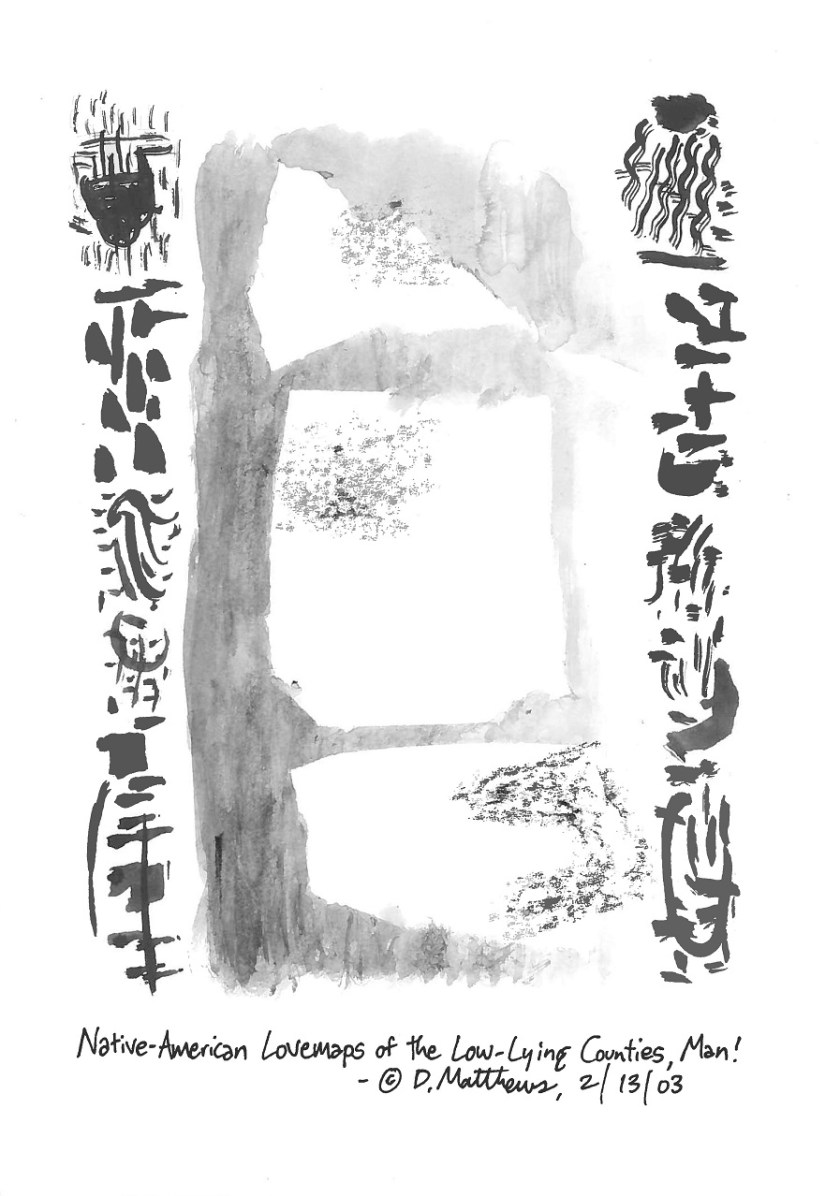 Native-American Lovemaps of the Low-Lying Counties, Man!
- © D. Matthews, 2/13/03